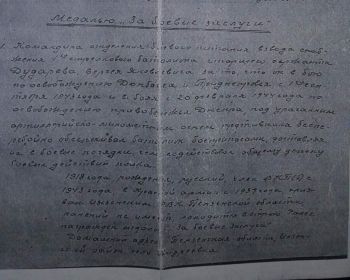 Медалью „За боевые заслуги"
1. Командира отделения боевого питания взвода снаб-
жения 1 стрелкового батальона старшего сержанта
Дударева Яковлевича за то, что он в боях
по освобождению Донбасса и Приднепровья с
1943 года и в боях с 20 февраля 1944 года по
освобождению правобережья Днепра под ураганным
артиллерийско-минометным огнем противника беспе-
ребойно обслуживал батальон боеприпасами, доставляя
их в боевые порядки, чем содействовал общему успеху
боевых действий полка.
1918 года рождения, русский, член ВКП(б) с
1943 года, в Красной армии с 1939 года, приз-
ван РВК Пензенской области,
ранений не имеет, ранее
награжден медалью „За боевые заслуги"
Домашний адрес: Пензенская область,
район, село